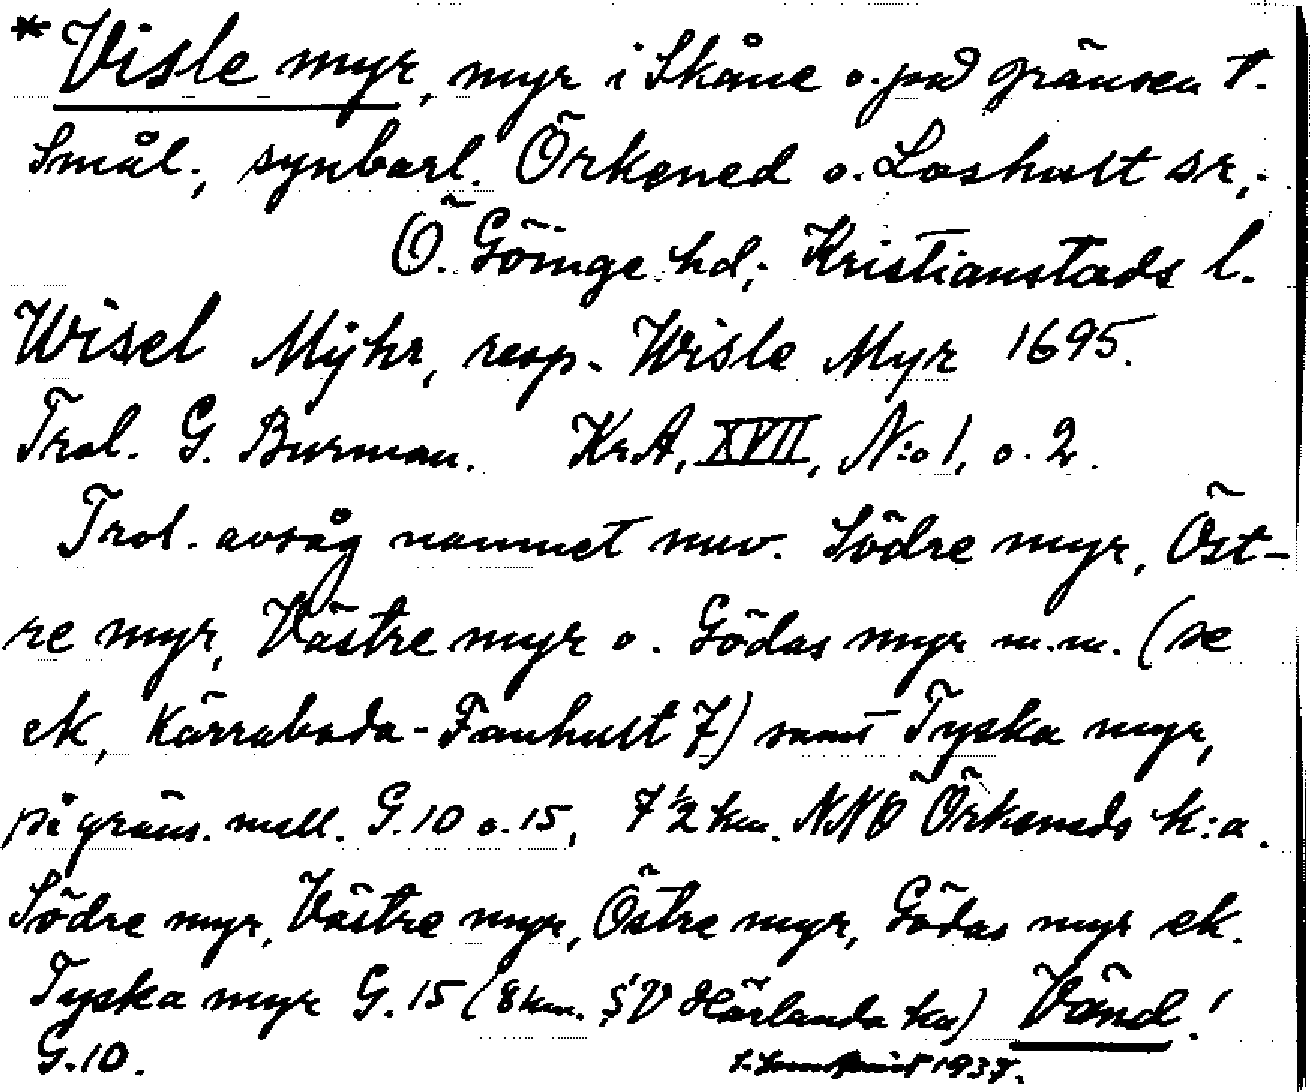 *Visle myr, myr i Skåne o. på gränsen t.
Smål., synbarl. Örkened o. Loshult sr,
Ö. Göinge hd; Kristianstads l.
Wisel Mÿhr, resp. Wisle Myr 1695.
Trol. G. Burman. KrA, XVII, N:o 1, o. 2.
Trol. avsåg namnet nuv. Södre myr, Öst-
re myr, Västre myr o. Gödas myr m.m. (se
ek, Kärraboda-Fanhult 7) samt Tyska myr,
på gräns. mell. G.10 o. 15, 7 1/2 km. NNO Örkeneds k:a.
Södre myr, Västre myr, Östre myr, Gödas myr ek.
Tyska myr G.15 (8 km. SV Härlunda ka) Vänd!
G.10. 1937.